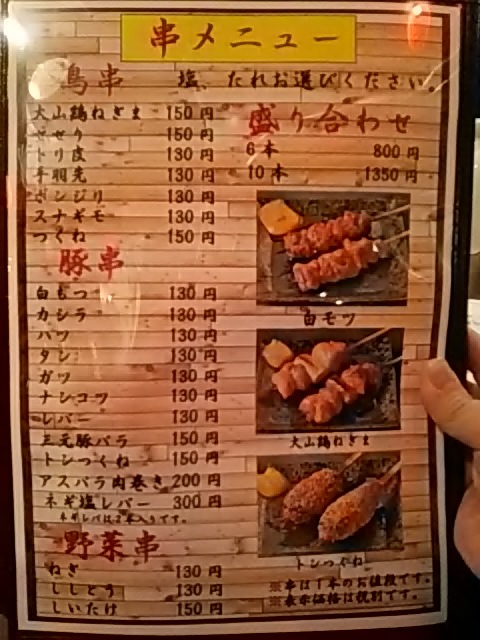 串メニュー
鳥串
塩、たれお選びください。
大山鶏ねぎま 150円
せせり 150円
トリ皮 130円
手羽先 130円
ボンジリ 130円
スナギモ 130円
つくね 150円
盛り合わせ
6本 800円
10本 1350円
豚串
白もつ 130円
カシラ 130円
ハツ 130円
タン 130円
ガツ 130円
ナンコツ 130円
レバー 130円
三元豚バラ 150円
トンつくね 150円
アスパラ肉巻き 200円
ネギ塩レバー 300円
ネギレバは2本入りです。
野菜串
ねぎ 130円
ししとう 130円
しいたけ 150円
白モツ
大山鶏ねぎま
トンつくね
※串は1本のお値段です。
※表示価格は税別です。